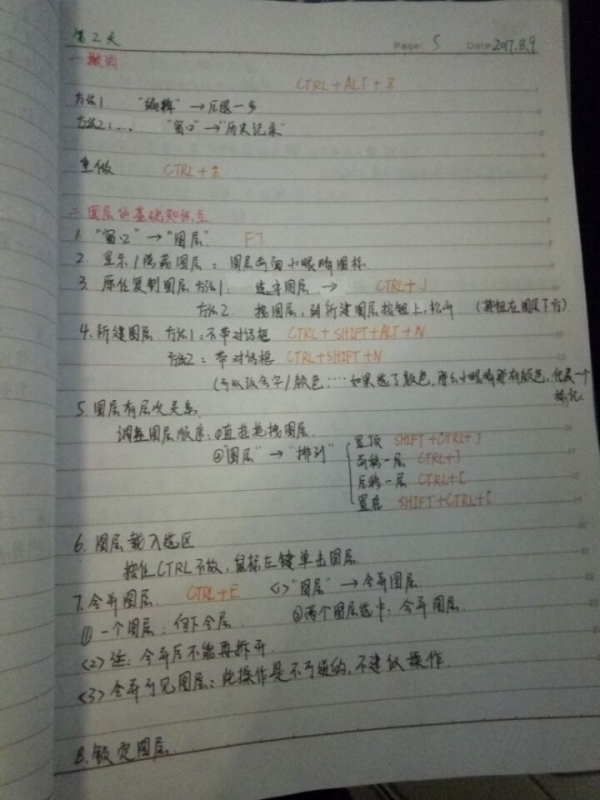 第2天
Page: 5 Date: 2017.8.9
一.撤销
CTRL+ALT+Z
方法1. "编辑"→后退一步
方法2:... "窗口"→"历史记录"
重做 CTRL+Z
二.图层的基础知识点
1. "窗口"→"图层" F7
2. 显示/隐藏图层:图层前面小眼睛图标
3. 原位复制图层 方法1: 选中图层 → CTRL+J
方法2. 按图层,到新建图层按钮上,松开 (按钮在图层下方)
4.新建图层 方法1:不带对话框 CTRL+SHIFT+ALT+N
方法2:带对话框 CTRL+SHIFT+N
(可以设名字/颜色:…如果选了颜色,那么小眼睛那有颜色,代表一个标记.
5.图层有层次关系,
调整图层顺序:①直接拖拽图层.
②"图层"→"排列"
置顶 SHIFT+CTRL+]
前移一层 CTRL+]
后移一层 CTRL+[
置底 SHIFT+CTRL+[
6.图层载入选区
按住CTRL不放,鼠标左键单击图层
7.合并图层. CTRL+E <1>"图层"→合并图层
①一个图层:向下合层 ②两个图层选中:合并图层.
<2>注:合并后不能再拆开
<3>合并可见图层:此操作是不可逆的,不建议操作.
8.锁定图层